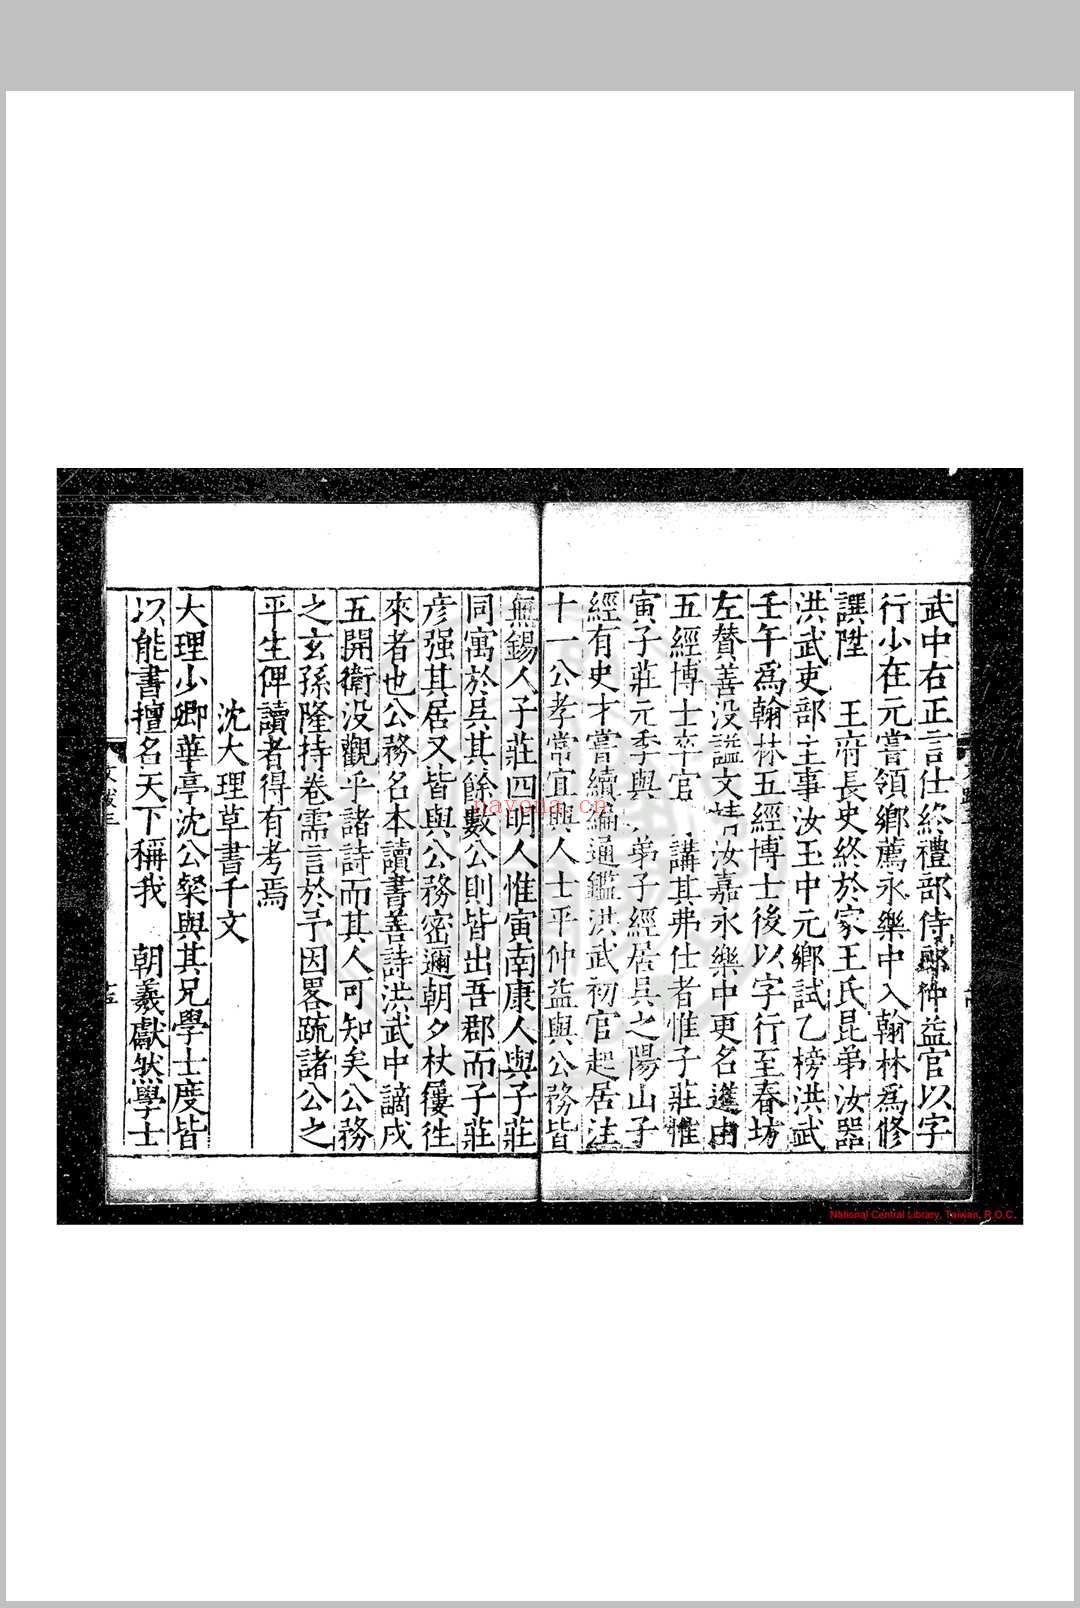 武中右正言仕終禮部侍郎仲益官以字
行少在元嘗領鄉薦永樂中入翰林為修
譔陞 王府長史終於家王氏昆弟汝器
洪武吏部主事汝玉中元鄉試乙榜洪武
壬午爲翰林五經博士後以字行至春坊
左賛善没謚文靖汝嘉永樂中更名進由
五經博士卒官 講其弗仕者惟子莊惟
寅子莊元季與 弟子經居吳之陽山子
經有史才嘗續編通鑑洪武初官起居注
十一公孝常宜興人士平仲益與公務皆
無錫人子莊四明人惟寅南康人與子莊
同寓於吳其餘數公則皆出吾郡而子莊
彦强其居又皆與公務密邇朝夕杖屨徃
來者也公務名本讀書善詩洪武中謫戍
五開衛没觀乎諸詩而其人可知矣公務
之玄孫隆持卷需言於予因畧疏諸公之
平生俾讀者得有考焉
沈大理草書千文
大理少卿華亭沈公粲與其兄學士度皆
以能書擅名天下稱我 朝羲獻然學士
navona.cn
National Central Library, Taiwan, R.O.C.